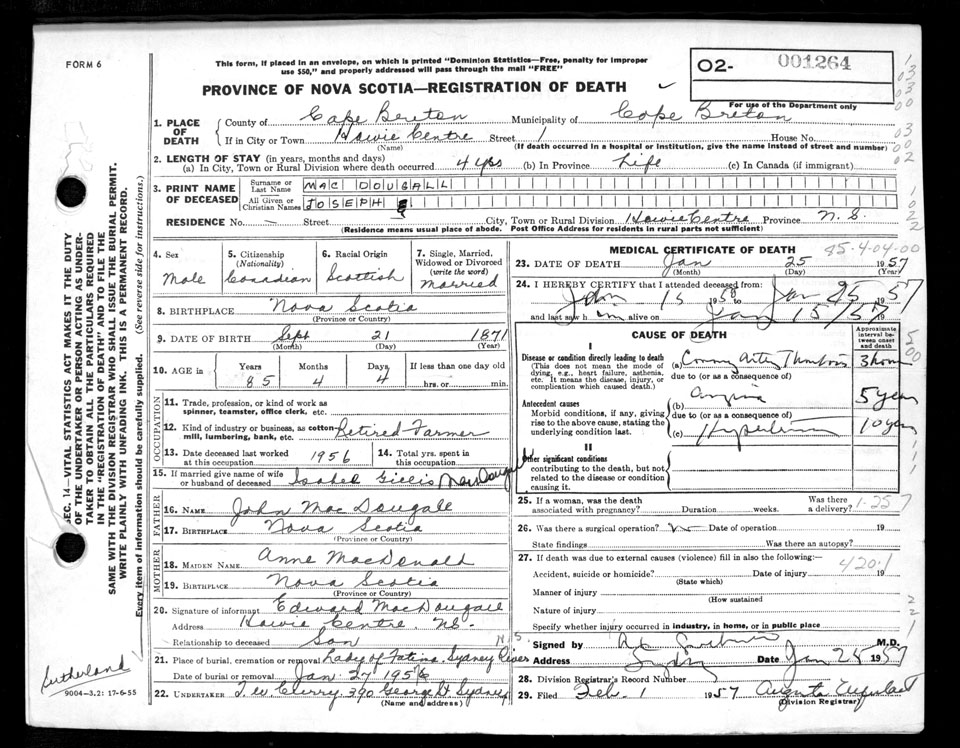 FORM 6
This form, if placed in an envelope, on which is printed "Dominion Statistics—Free, penalty for improper
use $50," and properly addressed will pass through the mail "FREE"
O2- 001264
PROVINCE OF NOVA SCOTIA—REGISTRATION OF DEATH
For use of the Department only
1. PLACE OF DEATH
County of Cape Breton Municipality of Cape Breton
If in City or Town Howie Centre Street House No.
(Name) (If death occurred in a hospital or institution, give the name instead of street and number)
2. LENGTH OF STAY (in years, months and days)
(a) In City, Town or Rural Division where death occurred 4 yrs (b) In Province Life (c) In Canada (if immigrant)
3. PRINT NAME OF DECEASED
Surname or Last Name MAC DOUGALL
All Given or Christian Names JOSEPH
RESIDENCE No. — Street City, Town or Rural Division Howie Centre Province N. S.
(Residence means usual place of abode. Post Office Address for residents in rural parts not sufficient)
4. Sex Male
5. Citizenship (Nationality) Canadian
6. Racial Origin Scottish
7. Single, Married, Widowed or Divorced (write the word) Married
8. BIRTHPLACE Nova Scotia
(Province or Country)
9. DATE OF BIRTH Sept 21 1871
(Month) (Day) (Year)
10. AGE in Years Months Days If less than one day old
85 4 4 hrs. or min.
OCCUPATION
11. Trade, profession, or kind of work as
spinner, teamster, office clerk, etc.
12. Kind of industry or business, as cotton
mill, lumbering, bank, etc. Retired Farmer
13. Date deceased last worked at this occupation 1956
14. Total yrs. spent in this occupation
15. If married give name of wife
or husband of deceased Isabel Gillis MacDougall
FATHER
16. NAME John MacDougall
17. BIRTHPLACE Nova Scotia
(Province or Country)
MOTHER
18. MAIDEN NAME Anne MacDonald
19. BIRTHPLACE Nova Scotia
(Province or Country)
20. Signature of informant Edward MacDougall
Address Howie Centre. NS.
Relationship to deceased Son
21. Place of burial, cremation or removal Lady of Fatima, Sydney River N.S.
Date of burial or removal Jan 27 1956
22. UNDERTAKER T. W Curry, 390 George St Sydney
(Name and address)
MEDICAL CERTIFICATE OF DEATH
85-4-04-00
23. DATE OF DEATH Jan 25 1957
(Month) (Day) (Year)
24. I HEREBY CERTIFY that I attended deceased from:
Jan 25 1957
and last saw h im alive on Jan 15/57 19
CAUSE OF DEATH
Approximate interval between onset and death
I
Disease or condition directly leading to death
(This does not mean the mode of
dying, e.g., heart failure, asthenia,
etc. It means the disease, injury, or
complication which caused death.)
(a) Thrombosis
due to (or as a consequence of)
Antecedent causes
Morbid conditions, if any, giving
rise to the above cause, stating the
underlying condition last.
(b) Angina 5 years
due to (or as a consequence of)
(c) 10 years
II
Other significant conditions
contributing to the death, but not
related to the disease or condition
causing it.
25. If a woman, was the death associated with pregnancy? Duration weeks. Was there a delivery?
26. Was there a surgical operation? Date of operation 19
State findings Was there an autopsy?
27. If death was due to external causes (violence) fill in also the following:
420.1
Accident, suicide or homicide? Date of injury 19
(State which)
Manner of injury
(How sustained
Nature of injury
Specify whether injury occurred in industry, in home, or in public place
Signed by M.D.
Address Sydney Date Jan 25 1957
28. Division Registrar's Record Number
29. Filed Feb. 1 1957 Augusta
(Division Registrar)
SEC. 14—VITAL STATISTICS ACT MAKES IT THE DUTY
OF THE UNDERTAKER OR PERSON ACTING AS UNDER-
TAKER TO OBTAIN ALL THE PARTICULARS REQUIRED
IN THE "REGISTRATION OF DEATH" AND TO FILE THE
SAME WITH THE DIVISION REGISTRAR WHO SHALL ISSUE THE BURIAL PERMIT.
WRITE PLAINLY WITH UNFADING INK. THIS IS A PERMANENT RECORD.
Every item of information should be carefully supplied. (See reverse side for instructions.)
Sutherland
9004—3.2: 17-6-55